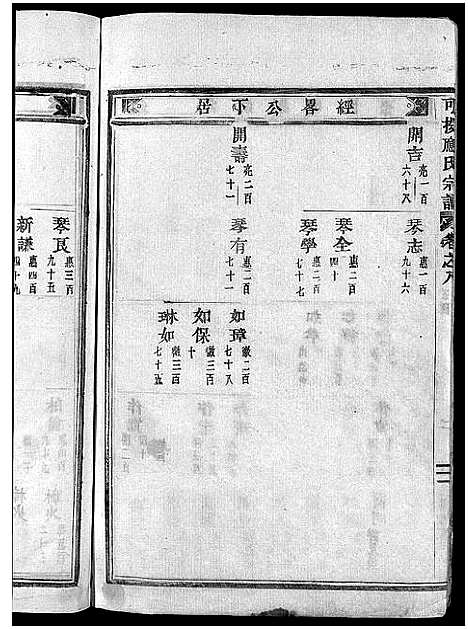 經畧公下居
開吉 亮一百六十八
開壽 亮二百七十一
琴志 惠一百九十六
琴全 惠二百四十
琴學 惠二百七十七
琴有 惠二百七十一
如璋 徽二百七十八
如保 徽三百十
琳如 徽三百七十五
琴良 惠三百九十五
新謙 惠四百四十九
氏宗譜
卷之八